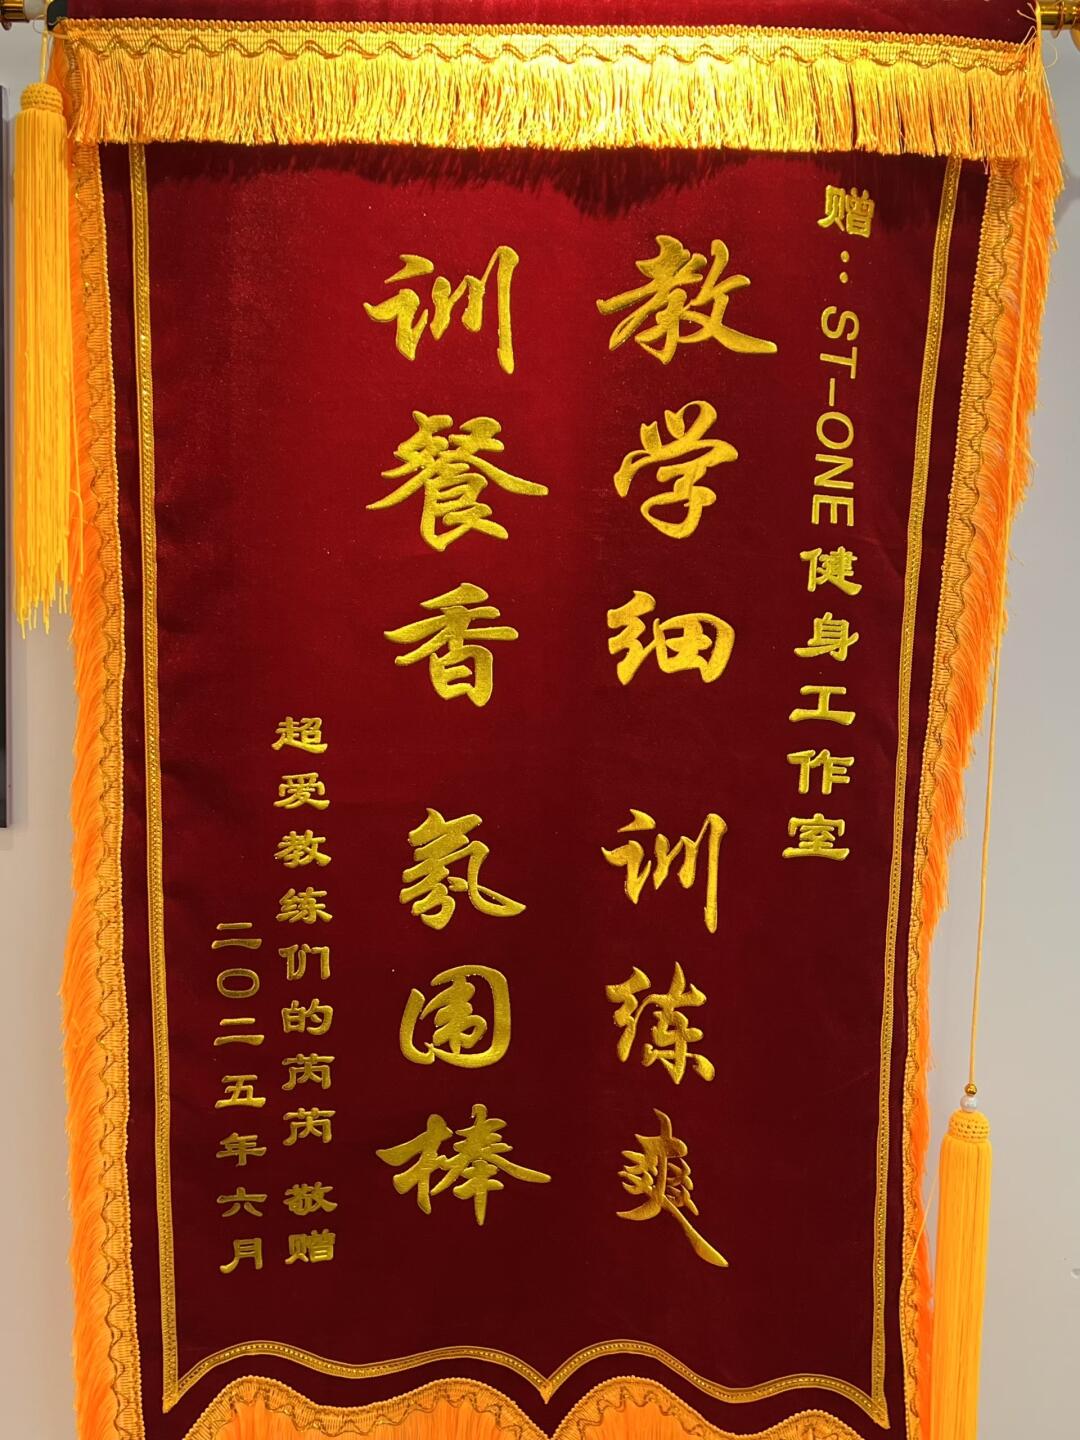 赠：ST-ONE健身工作室
教学细 训练爽
训餐香 氛围棒
超爱教练们的芮芮 敬赠
二〇二五年六月